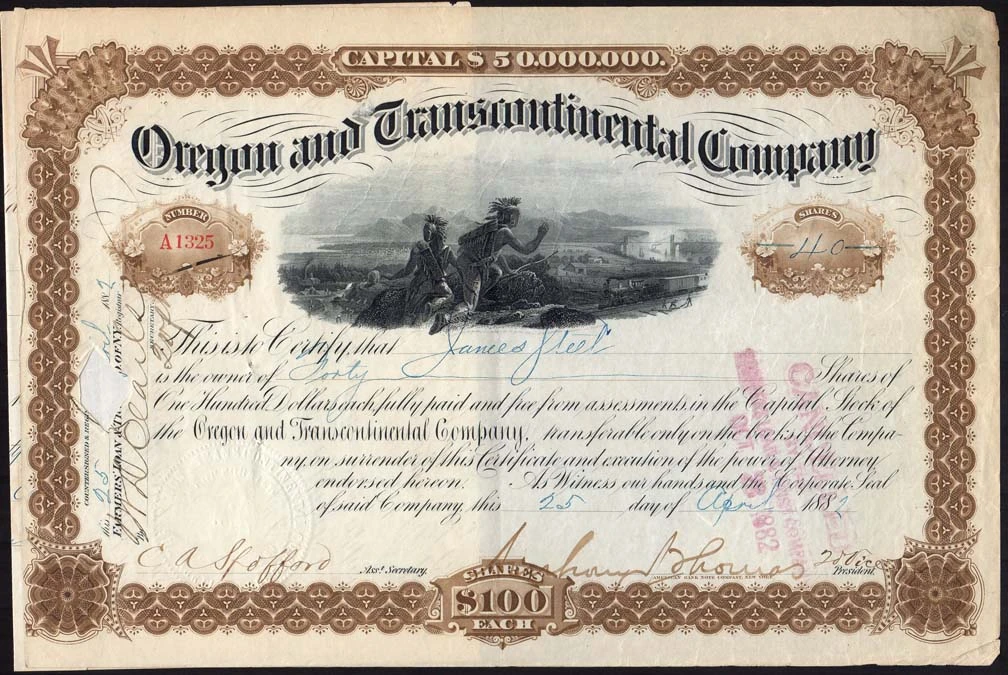 CAPITAL $50.000.000.
Oregon and Transcontinental Company
NUMBER
A1325
SHARES
40
This is to Certify, that James Steel
is the owner of Forty Shares of
One Hundred Dollars each, fully paid and free from assessments, in the Capital Stock of
the Oregon and Transcontinental Company, transferable only on the books of the Compa-
ny, on surrender of this Certificate and execution of the power of Attorney
endorsed hereon. As Witness our hands and the Corporate Seal
of said Company, this 25 day of April 1882
C A Spofford
Asst. Secretary.
2d Vice
President.
AMERICAN BANK NOTE COMPANY, NEW YORK.
SHARES
$100
EACH
COUNTERSIGNED &
this 25 1882
FARMERS LOAN &
By
SECRETARY
1882